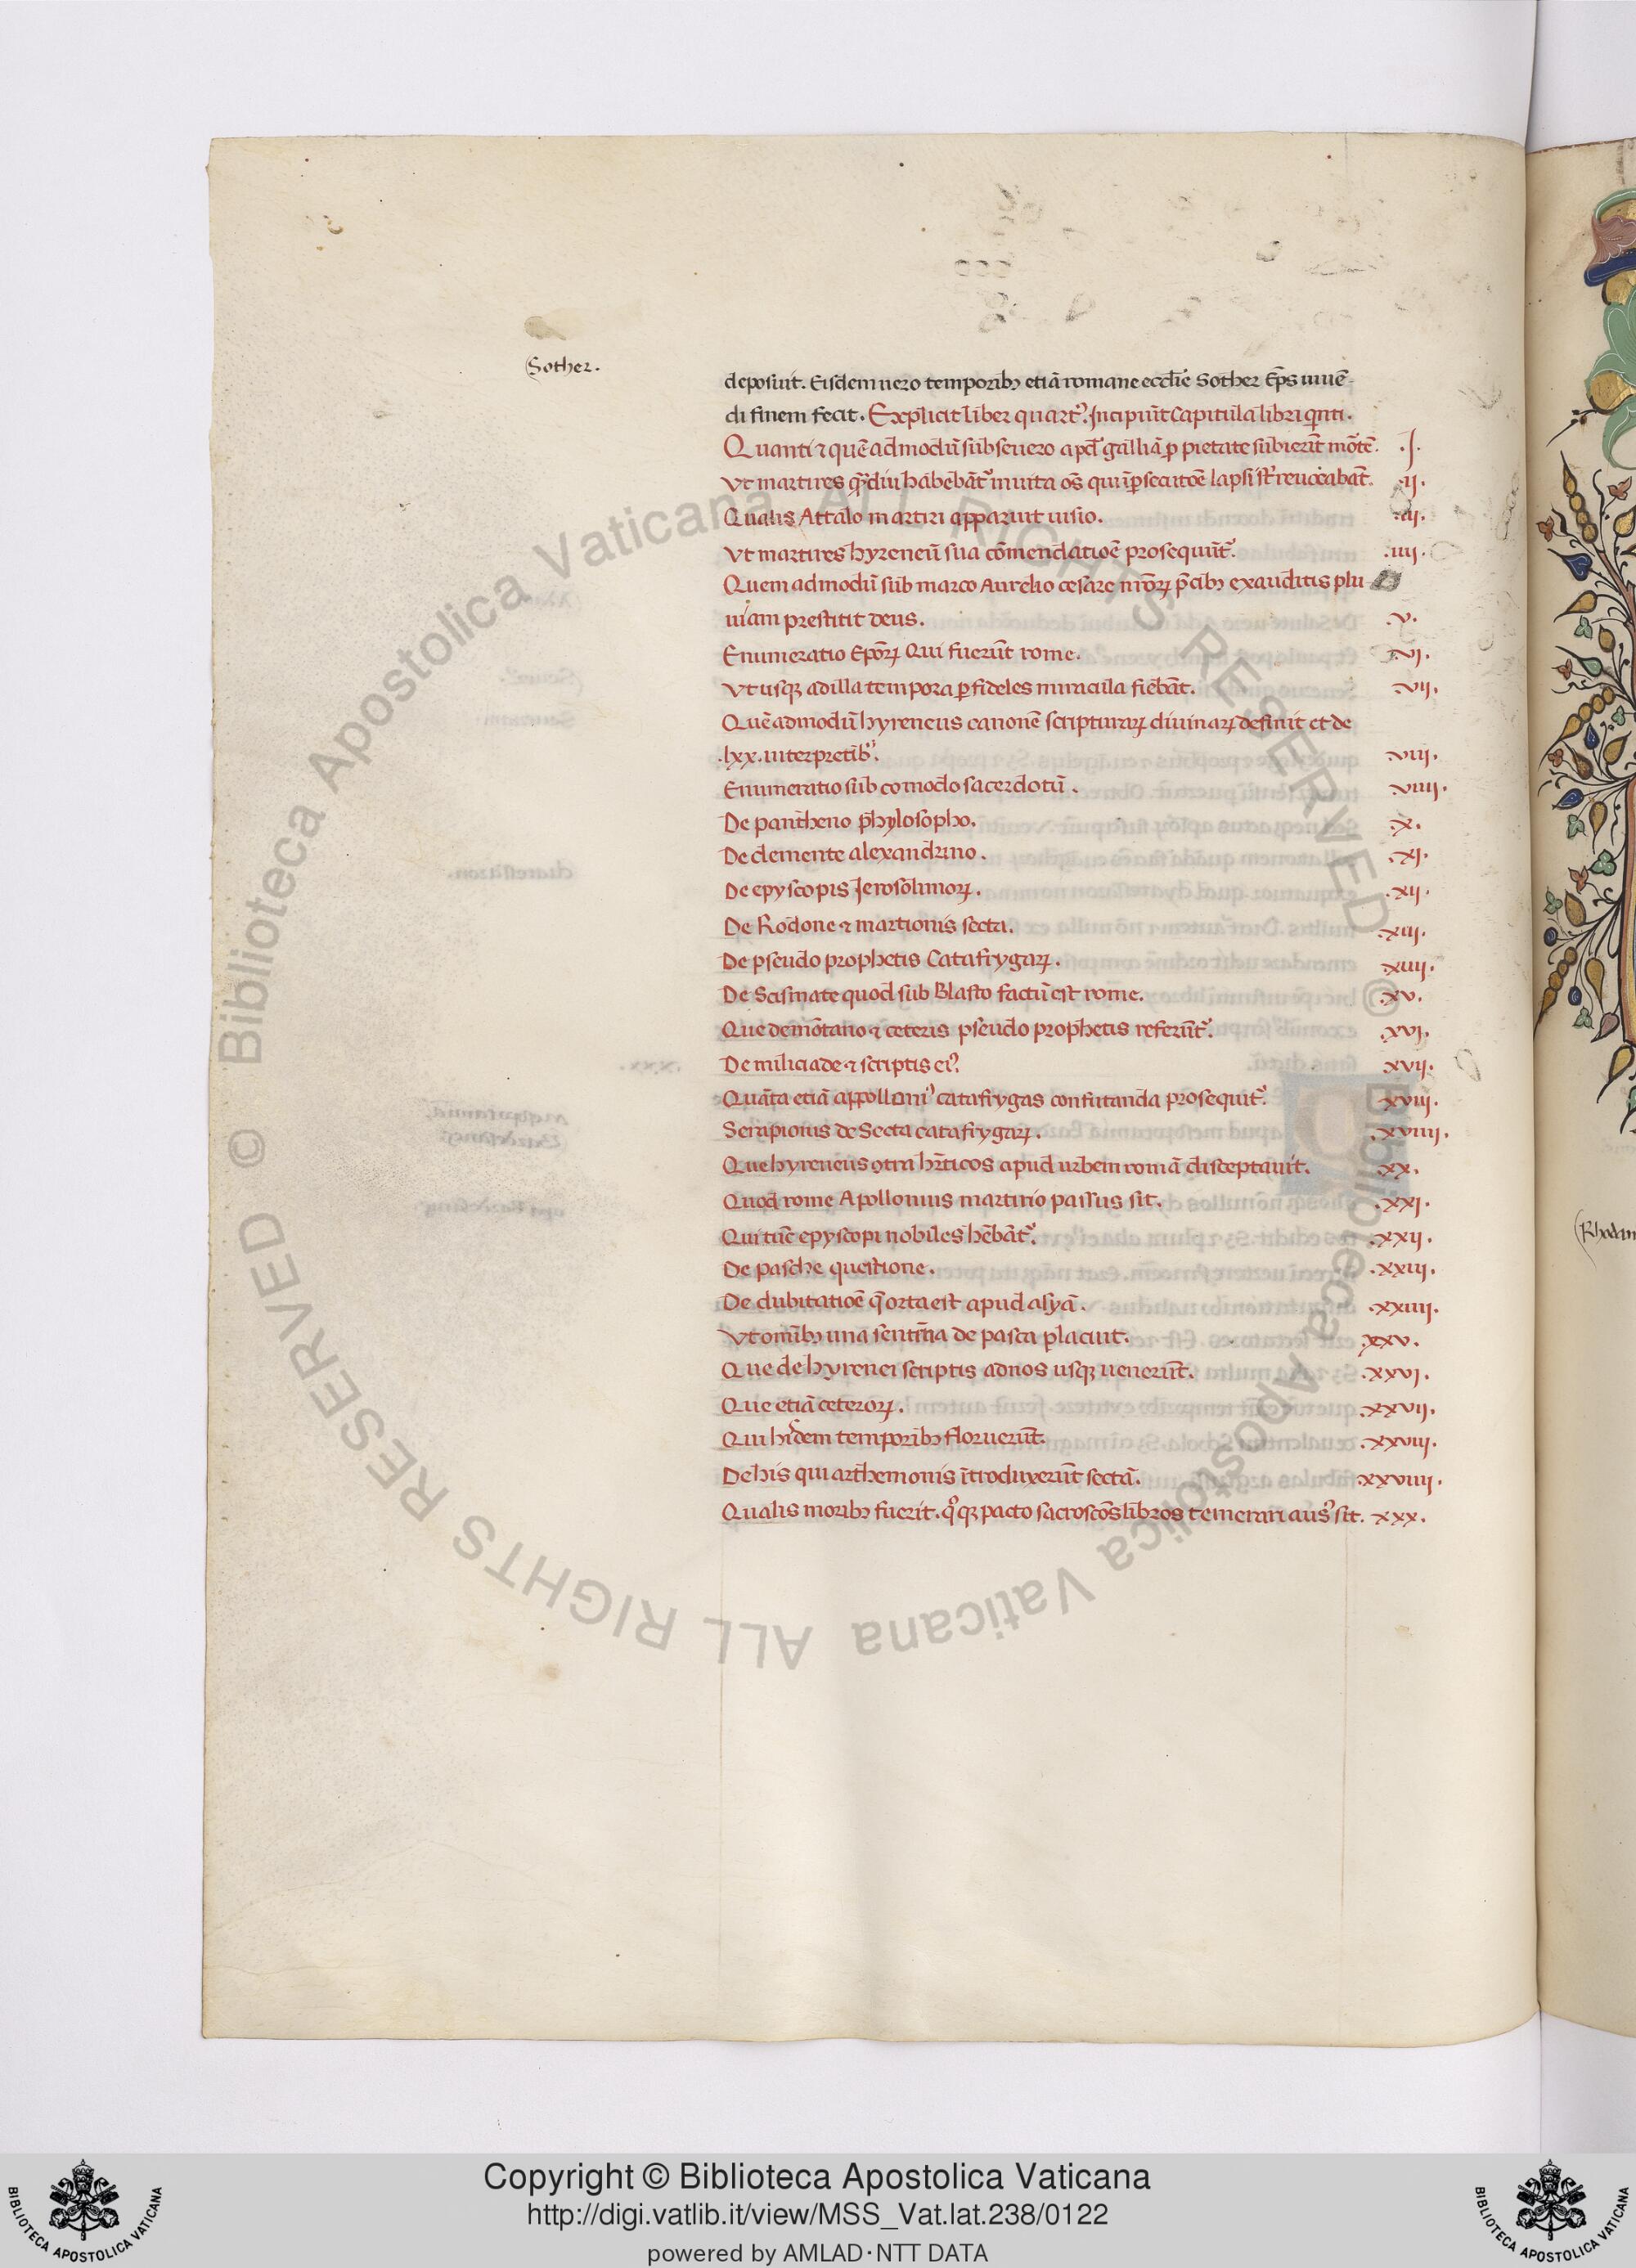 Sother.
deposuit. Eisdem uero temporibꝫ etiā romane eccłie Sother Ep̄s uiuē-
di finem fecit. Explicit liber quartꝰ. Incipiūt Capitula libri qnti.
Quanti ⁊ quēadmodū sub seuero apd̄ galliā ꝓ pietate subierīt mōtē. .I.
Vt martires q̄diu habebāt᷑ in uita oēs qui in ꝑsecutōe lapsi st̄ reuocabāt. .ij.
Qualis Attalo martiri apparuit uisio. .iij.
Vt martires hyreneū sua cōmendatioē prosequūt᷑. .iiij.
Quem admodū sub marco Aurelio cesare nr̄oꝝ p̄cibꝫ exauditis plu
uiam prestitit deus. .v.
Enumeratio Ep̄oꝝ Qui fuerūt rome. .vi.
Vt usqꝫ ad illa tempora ꝑ fideles miracula fiebāt. .vij.
Quēadmodū hyreneus canonē scripturaꝝ diuinaꝝ definit et de
.lxx. interpretibꝰ. .viij.
Enumeratio sub comodo sacerdotū. .viiij.
De pantheno phylosopho. .x.
De clemente alexandrino. .xi.
De epyscopis Ierosolimoꝝ. .xij.
De Rodone ⁊ martionis secta. .xiij.
De pseudo prophetis Catafrygaꝝ. .xiiij.
De Scismate quod sub Blasto factū est rome. .xv.
Que de mōtano ⁊ ceteris pseudo prophetis referūt᷑. .xvi.
De miliciade ⁊ scriptis eiꝰ. .xvij.
Quāta etiā appolloniꝰ catafrygas confutanda prosequit᷑. .xviij.
Serapionis de Secta catafrygaꝝ. .xviiij.
Que hyreneus ɔtra hr̄ticos apud urbem romā disceptauit. .xx.
Quod rome Apollonius martirio passus sit. .xxi.
Qui tūc epyscopi nobiles hēbāt᷑. .xxij.
De pasche questione. .xxiij.
De dubitatioē q̄ orta est apud asyā. .xxiiij.
Vt omībꝫ una sentētia de pasca placuit. .xxv.
Que de hyrenei scriptis ad nos usqꝫ uenerūt. .xxvi.
Que etiā ceteroꝝ. .xxvij.
Qui hisdem temporibꝫ floruerūt. .xxviij.
De his qui arthemonis ītroduxerūt sectā. .xxviiij.
Qualis moribꝫ fuerit. qͦqꝫ pacto sacros scōs libros temerari ausꝰ sit. xxx.
© Biblioteca Apostolica Vaticana ALL RIGHTS RESERVED © Biblioteca Apostolica Vaticana ALL RIGHTS RESERVED
Copyright © Biblioteca Apostolica Vaticana
http://digi.vatlib.it/view/MSS_Vat.lat.238/0122
powered by AMLAD·NTT DATA
BIBLIOTECA APOSTOLICA VATICANA
BIBLIOTECA APOSTOLICA VATICANA